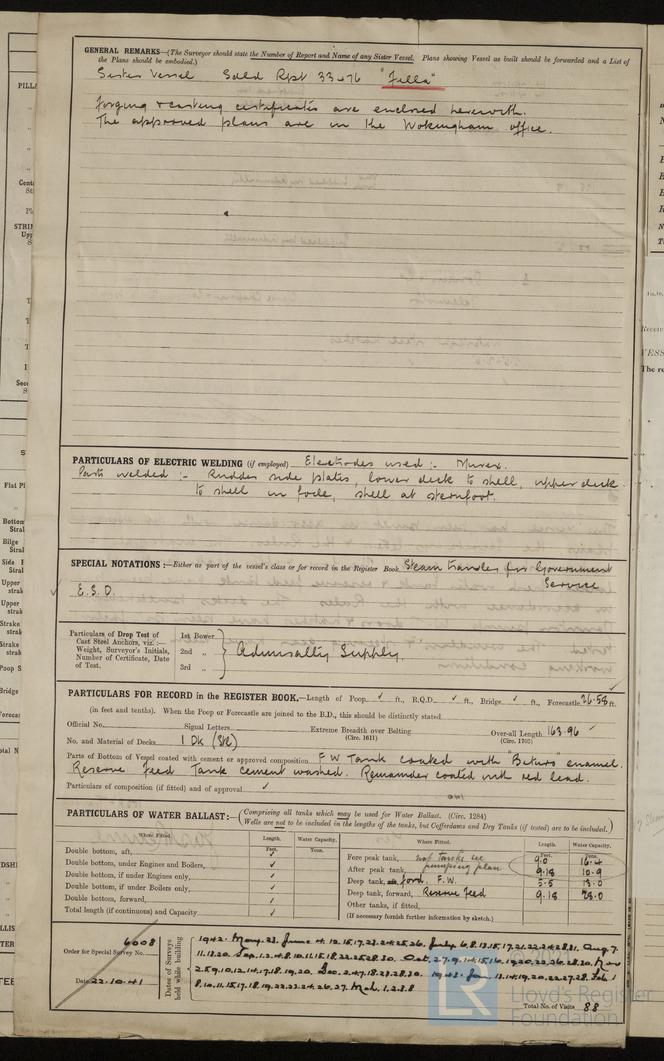 GENERAL REMARKS—(The Surveyor should state the Number of Report and Name of any Sister Vessel. Plans showing Vessel as built should be forwarded and a List of
the Plans should be embodied.)
Sister Vessel Sold Rpt 33476 "Filla"
Forging & casting certificates are enclosed herewith.
The approved plans are in the Wokingham office.
PARTICULARS OF ELECTRIC WELDING (if employed) Electrodes used :- Murex.
Parts welded :- Rudder side plates, lower deck to shell, upper deck
to shell in focle, shell at sternfoot.
SPECIAL NOTATIONS:—Either as part of the vessel's class or for record in the Register Book Steam trawler for Government
Service
E.S.D.
Particulars of Drop Test of
Cast Steel Anchors, viz.:—
Weight, Surveyor's Initials,
Number of Certificate, Date
of Test.
1st Bower
2nd "
3rd "
Admiralty Supply.
PARTICULARS FOR RECORD in the REGISTER BOOK.—Length of Poop ✓ ft., R.Q.D. ✓ ft., Bridge ✓ ft., Forecastle 26.58 ft.
(in feet and tenths). When the Poop or Forecastle are joined to the B.D., this should be distinctly stated
Official No. Signal Letters Extreme Breadth over Belting (Circ. 1611) Over-all Length 163.96 (Circ. 1703)
No. and Material of Decks 1 Dk (Stl)
Parts of Bottom of Vessel coated with cement or approved composition F W Tank coated with "Bituros" enamel.
Reserve Feed Tank cement washed. Remainder coated with red lead.
Particulars of composition (if fitted) and of approval ✓
PARTICULARS OF WATER BALLAST:—(Comprising all tanks which may be used for Water Ballast. (Circ. 1284)
Wells are not to be included in the lengths of the tanks, but Cofferdams and Dry Tanks (if tested) are to be included.)
Where Fitted. Length. Water Capacity.
Feet. Tons.
Double bottom, aft, ✓
Double bottom, under Engines and Boilers, ✓
Double bottom, if under Engines only, ✓
Double bottom, if under Boilers only, ✓
Double bottom, forward, ✓
Total length (if continuous) and Capacity ✓
Where Fitted. Length. Water Capacity.
Feet. Tons.
Fore peak tank, not tanks see 9.0 16.4
After peak tank, pumping plan 9.18 10.9
Deep tank, ford. F.W. 5.5 13.0
Deep tank, forward, Reserve Feed 9.18 28.0
Other tanks, if fitted,
(If necessary furnish further information by sketch.)
Order for Special Survey No. 6008
Date 22.10.41
Dates of Surveys
held while building
1942. May. 23. June 4. 12. 15. 17. 23. 24. 25. 26. July 6. 8. 13. 15. 17. 21. 22. 24. 28. 31. Aug 7.
11. 13. 20. Sep. 1. 2. 4. 8. 10. 11. 15. 18. 22. 25. 28. 30. Oct. 2. 7. 9. 14. 15. 16. 19. 20. 22. 26. 28. 30. Nov
2. 5. 9. 10. 12. 14. 17. 18. 19. 20. Dec. 2. 4. 7. 18. 23. 28. 30. 1943. Jan. 13. 14. 19. 20. 22. 27. 28. Feb. 1
8. 10. 11. 15. 17. 18. 19. 22. 23. 24. 26. 27. Mch. 1. 2. 3. 8
Total No. of Visits 88
LR
Lloyd's Register
Foundation